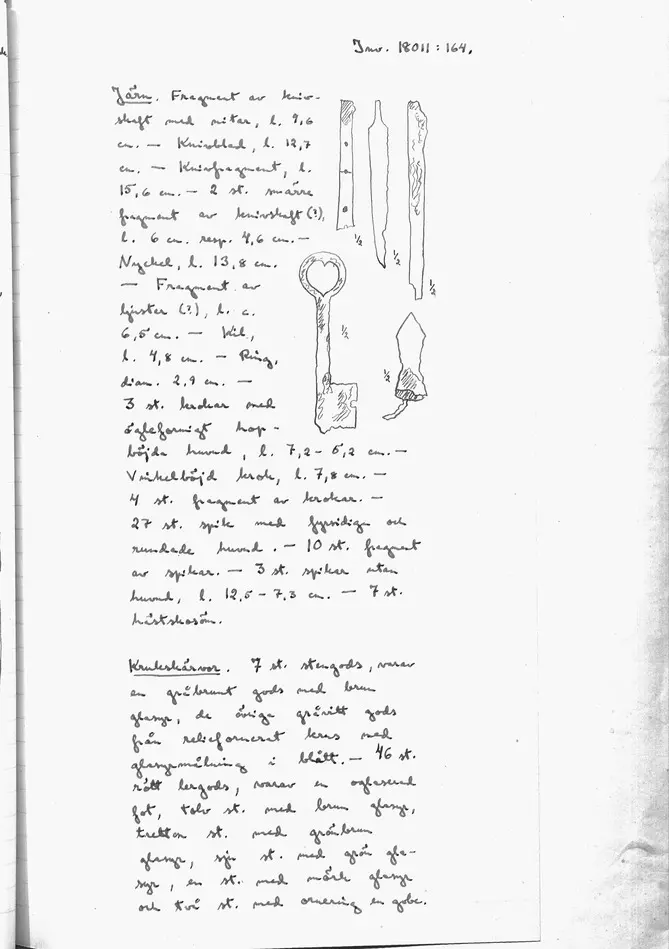 Inv. 18011:164.
Järn. Fragment av kniv-
skaft med nitar, l. 9,6
cm. — Knivblad, l. 12,7
cm. — Knivfragment, l.
15,6 cm. — 2 st. smärre
fragment av knivskaft (?),
l. 6 cm. resp. 4,6 cm. —
Nyckel, l. 13,8 cm.
— Fragment av
ljuster (?), l. c.
6,5 cm. — Kil,
l. 4,8 cm. — Ring,
diam. 2,9 cm. —
3 st. krokar med
ögleformigt hop-
böjda huvud, l. 7,2–5,2 cm. —
Vinkelböjd krok, l. 7,8 cm. —
4 st. fragment av krokar. —
27 st. spik med fyrsidiga och
rundade huvud. — 10 st. fragment
av spikar. — 3 st. spikar utan
huvud, l. 12,5–7,3 cm. — 7 st.
hästskosöm.
1/2
1/2
1/2
1/2
1/2
Krukskärvor. 7 st. stengods, varav
en gråbrunt gods med brun
glasyr, de övriga gråvitt gods
från reliefornerat krus med
glasyrmålning i blått. — 46 st.
rött lergods, varav en oglaserad
fot, tolv st. med brun glasyr,
tretton st. med grönbrun
glasyr, sju st. med grön gla-
syr, en st. med mörk glasyr
och två st. med ornering en gobe.